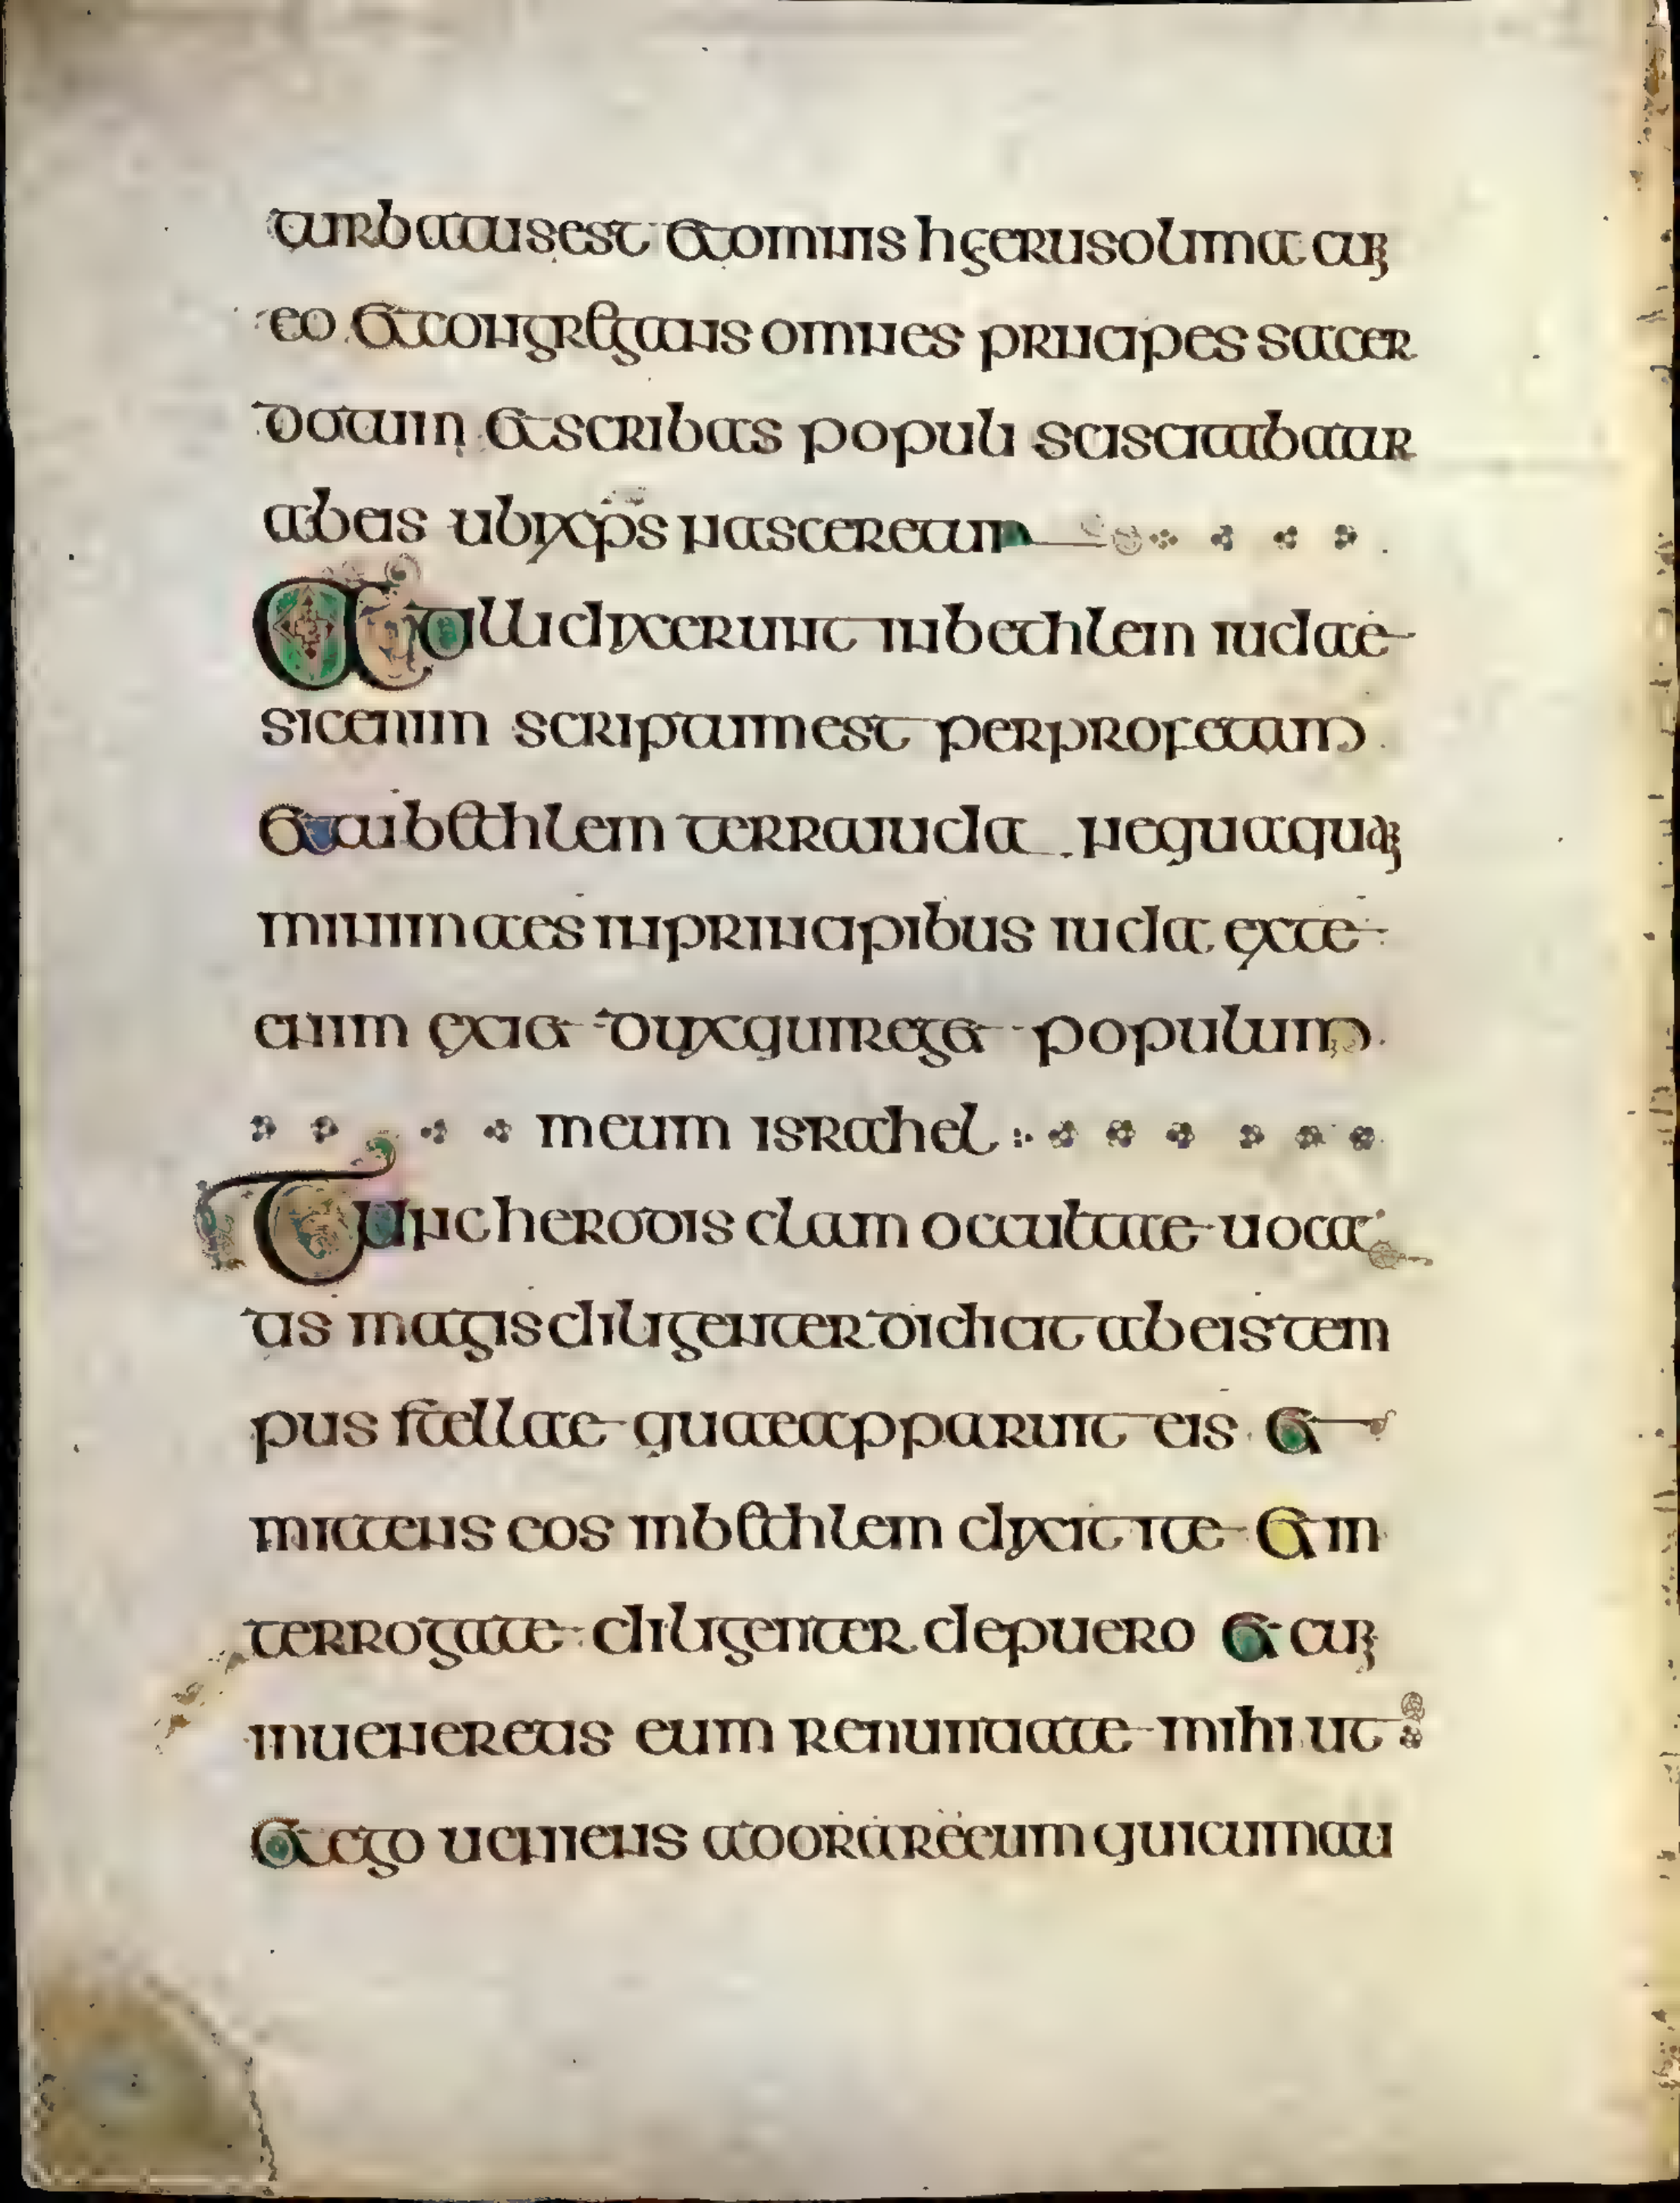 turbatus est et omnis hierusolima cum
eo et congregatis omnes principes sacer
dotum et scribas populi sciscitabatur
ab eis ubi xps nasceretur
At illi dixerunt in bethlem iudae
sic enim scriptum est per profetam
et tu bethlem terra iuda nequaquam
minima es in principibus iuda ex te
enim exiet dux qui reget populum
meum israhel
Tunc herodis clam occultate uoca
tis magis diligenter didicit ab eis tem
pus stellae quae apparuit eis et
mittens eos in bethlem dixit ite et in
terrogate diligenter de puero et cum
inueneretis eum renuntiate mihi ut
et ego ueniens adorare eum qui cum au